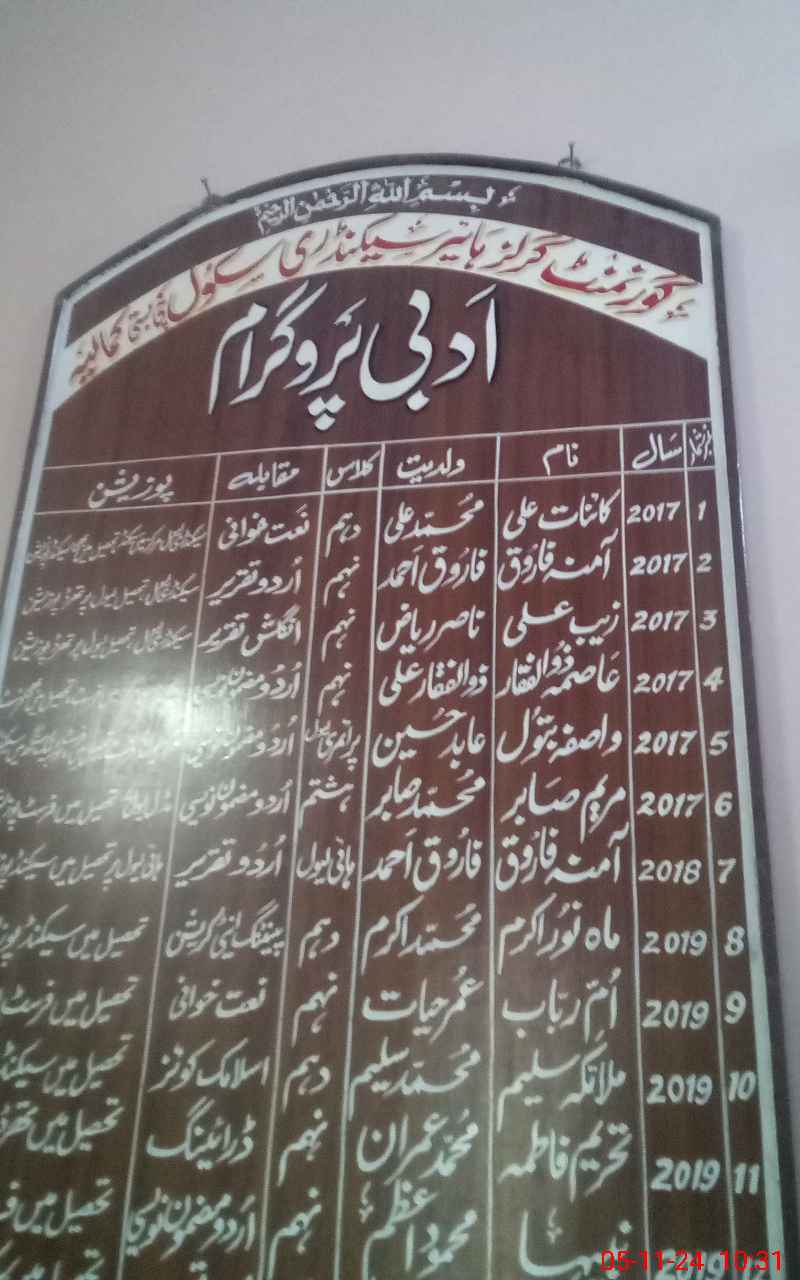 بسم اللہ الرحمٰن الرحیم
گورنمنٹ گرلز ہائیر سیکنڈری سکول کمالیہ
اَدبی پَروگرام
نمبرشمار سَال نام ولدیت کلاس مقابلہ پوزیشن
1 2017 کائنات علی محُمّد علی دہم نَعت خوانی
2 2017 آمنہ فارُوق فارُوق اَحمد نہم اُردو تقریر سیکنڈ تحصیل لیول پر تھرڈ پوزیشن
3 2017 زیب علی ناصر ریاض نہم انگلش تقریر تحصیل لیول پر تھرڈ پوزیشن
4 2017 عَاصمہ ذُوالفقار ذُوالفقار علی نہم اُردُو مضمون نویسی
5 2017 واصفہ بتوُل عابد حسُین پرائمری لیول اُردُو مضمون نویسی
6 2017 مریم صَابر محُمّد صابر ہشتم اُردو مضمون نویسی تحصیل میں فرسٹ
7 2018 آمنہ فارُوق فارُوق اَحمد ہائی لیول اُردُو تقریر ہائی لیول پر تحصیل میں سیکنڈ
8 2019 ماہ نُور اکرم محُمّد اکرم دہم پینٹنگ تحصیل میں سیکنڈ
9 2019 اُمّ ربّاب عمُر حیات نہم نعت خوانی تحصیل میں فرسٹ
10 2019 ملائکہ سلیم محُمّد سلیم دہم اسلامک کوئز تحصیل میں سیکنڈ
11 2019 تحریم فاطمہ محُمّد عمران نہم ڈرائینگ تحصیل میں تھرڈ
نیہا محمُود اعظم نہم اُردو مضمُون نویسی تحصیل میں
05-11-24 10:31